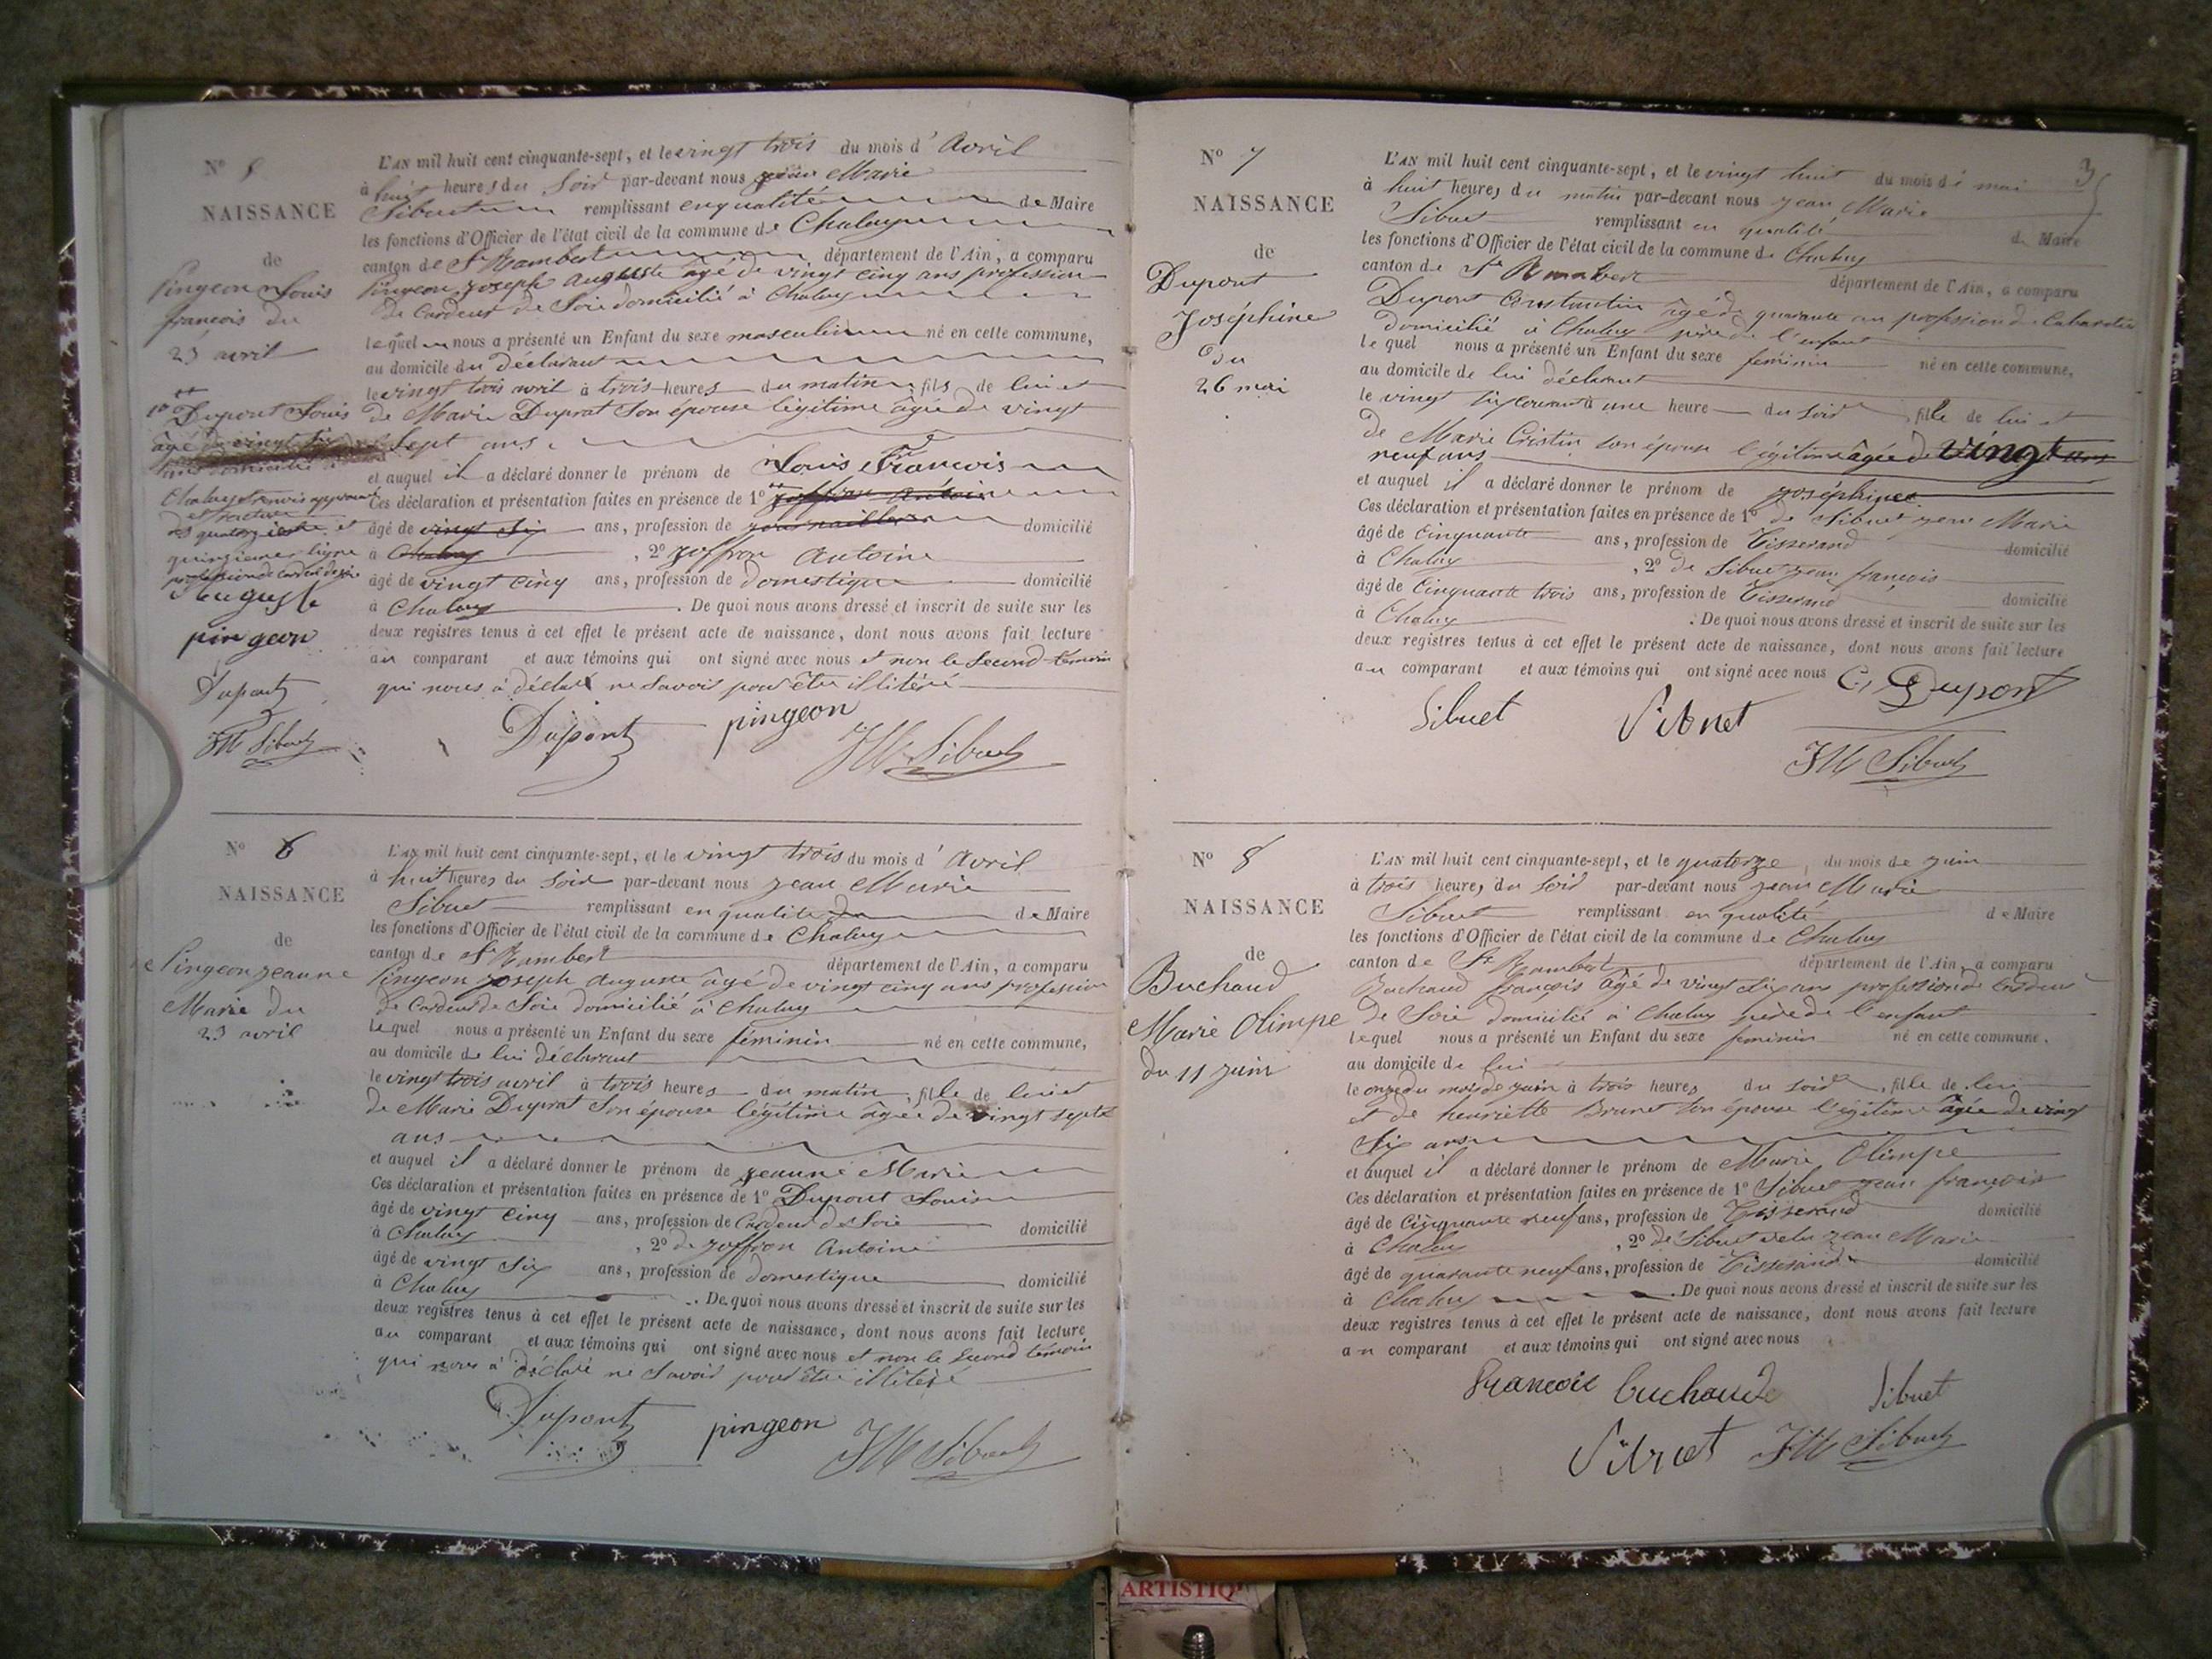 N° 5
NAISSANCE
de
Pingeon Louis
francois du
23 avril
1° Dupont Louis
âgé de vingt six
Chaley
quinzieme ligne
profession de cardeur de soie
Auguste
pingeon
Dupont
JM Sibuet
L'AN mil huit cent cinquante-sept, et le vingt trois du mois d' Avril
à huit heures du Soir par-devant nous jean Marie
Sibuet remplissant en qualité de Maire
les fonctions d'Officier de l'état civil de la commune de Chaley
canton de St Rambert département de l'Ain, a comparu
Pingeon joseph auguste âgé de vingt cinq ans profession
de Cardeur de Soie domicilié à Chaley
lequel nous a présenté un Enfant du sexe masculin né en cette commune,
au domicile du déclarant
le vingt trois avril à trois heures du matin, fils de lui et
de Marie Duprat son épouse légitime âgée de vingt
sept ans.
et auquel il a déclaré donner le prénom de Louis Francois
Ces déclaration et présentation faites en présence de 1° joffron Antoine
âgé de vingt six ans, profession de journaillier domicilié
à Chaley , 2° joffron Antoine
âgé de vingt cinq ans, profession de domestique domicilié
à Chaley . De quoi nous avons dressé et inscrit de suite sur les
deux registres tenus à cet effet le présent acte de naissance, dont nous avons fait lecture
au comparant et aux témoins qui ont signé avec nous et non le Second témoin
qui nous à déclaré ne Savoir pour être illitéré
Dupont pingeon
JM Sibuet
N° 6
NAISSANCE
de
Pingeon jeanne
Marie du
23 avril
L'AN mil huit cent cinquante-sept, et le vingt trois du mois d' Avril
à huit heures du Soir par-devant nous jean Marie
Sibuet remplissant en qualité de Maire
les fonctions d'Officier de l'état civil de la commune de Chaley
canton de St Rambert département de l'Ain, a comparu
Pingeon joseph auguste âgé de vingt cinq ans profession
de Cardeur de Soie domicilié à Chaley
lequel nous a présenté un Enfant du sexe féminin né en cette commune,
au domicile de lui déclarant
le vingt trois avril à trois heures du matin, fille de lui et
de Marie Duprat Son épouse légitime âgée de vingt septe
ans
et auquel il a déclaré donner le prénom de jeanne Marie
Ces déclaration et présentation faites en présence de 1° Dupont Louis
âgé de vingt cinq ans, profession de Cardeur de Soie domicilié
à Chaley , 2° de joffron Antoine
âgé de vingt six ans, profession de domestique domicilié
à Chaley . De quoi nous avons dressé et inscrit de suite sur les
deux registres tenus à cet effet le présent acte de naissance, dont nous avons fait lecture
au comparant et aux témoins qui ont signé avec nous et non le Second témoin
qui nous à déclaré ne Savoir pour être illitéré
Dupont pingeon JM Sibuet
3
N° 7
NAISSANCE
de
Dupont
Joséphine
du
26 mai
L'AN mil huit cent cinquante-sept, et le vingt huit du mois de mai
à huit heures du matin par-devant nous jean Marie
Sibuet remplissant en qualité de Maire
les fonctions d'Officier de l'état civil de la commune de Chaley
canton de St Rambert département de l'Ain, a comparu
Dupont Constantin âgé de quarante an profession de Cabaretier
domicilié à Chaley père de l'enfant
lequel nous a présenté un Enfant du sexe feminin né en cette commune,
au domicile de lui déclarant
le vingt six courant à une heure du soir, fille de lui et
de Marie Cristin son épouse légitime âgée de vingt ans
neuf ans
et auquel il a déclaré donner le prénom de joséphine
Ces déclaration et présentation faites en présence de 1° de Sibuet jean Marie
âgé de Cinquante ans, profession de Tisserand domicilié
à Chaley , 2° de Sibuet jean françois
âgé de Cinquante trois ans, profession de Tisserand domicilié
à Chaley . De quoi nous avons dressé et inscrit de suite sur les
deux registres tenus à cet effet le présent acte de naissance, dont nous avons fait lecture
au comparant et aux témoins qui ont signé avec nous C. Dupont
Sibuet Sibuet
JM Sibuet
N° 8
NAISSANCE
de
Buchaud
Marie Olimpe
du 11 juin
L'AN mil huit cent cinquante-sept, et le quatorze du mois de juin
à trois heures du soir par-devant nous jean Marie
Sibuet remplissant en qualité de Maire
les fonctions d'Officier de l'état civil de la commune de Chaley
canton de St Rambert département de l'Ain, a comparu
Buchaud françois âgé de vingt six ans profession de Cardeur
de Soie domicilié à Chaley père de l'enfant
lequel nous a présenté un Enfant du sexe feminin né en cette commune,
au domicile de lui
le onze du mois de juin à trois heures du soir, fille de lui
et de henriette Brunet son épouse légitime âgée de vingt
six ans
et auquel il a déclaré donner le prénom de Marie Olimpe
Ces déclaration et présentation faites en présence de 1° Sibuet jean françois
âgé de Cinquante neuf ans, profession de Tisserand domicilié
à Chaley , 2° de Sibuet jean Marie
âgé de quarante neuf ans, profession de Tisserand domicilié
à Chaley . De quoi nous avons dressé et inscrit de suite sur les
deux registres tenus à cet effet le présent acte de naissance, dont nous avons fait lecture
au comparant et aux témoins qui ont signé avec nous
françois buchaud Sibuet
Sibuet JM Sibuet
ARTISTIQ